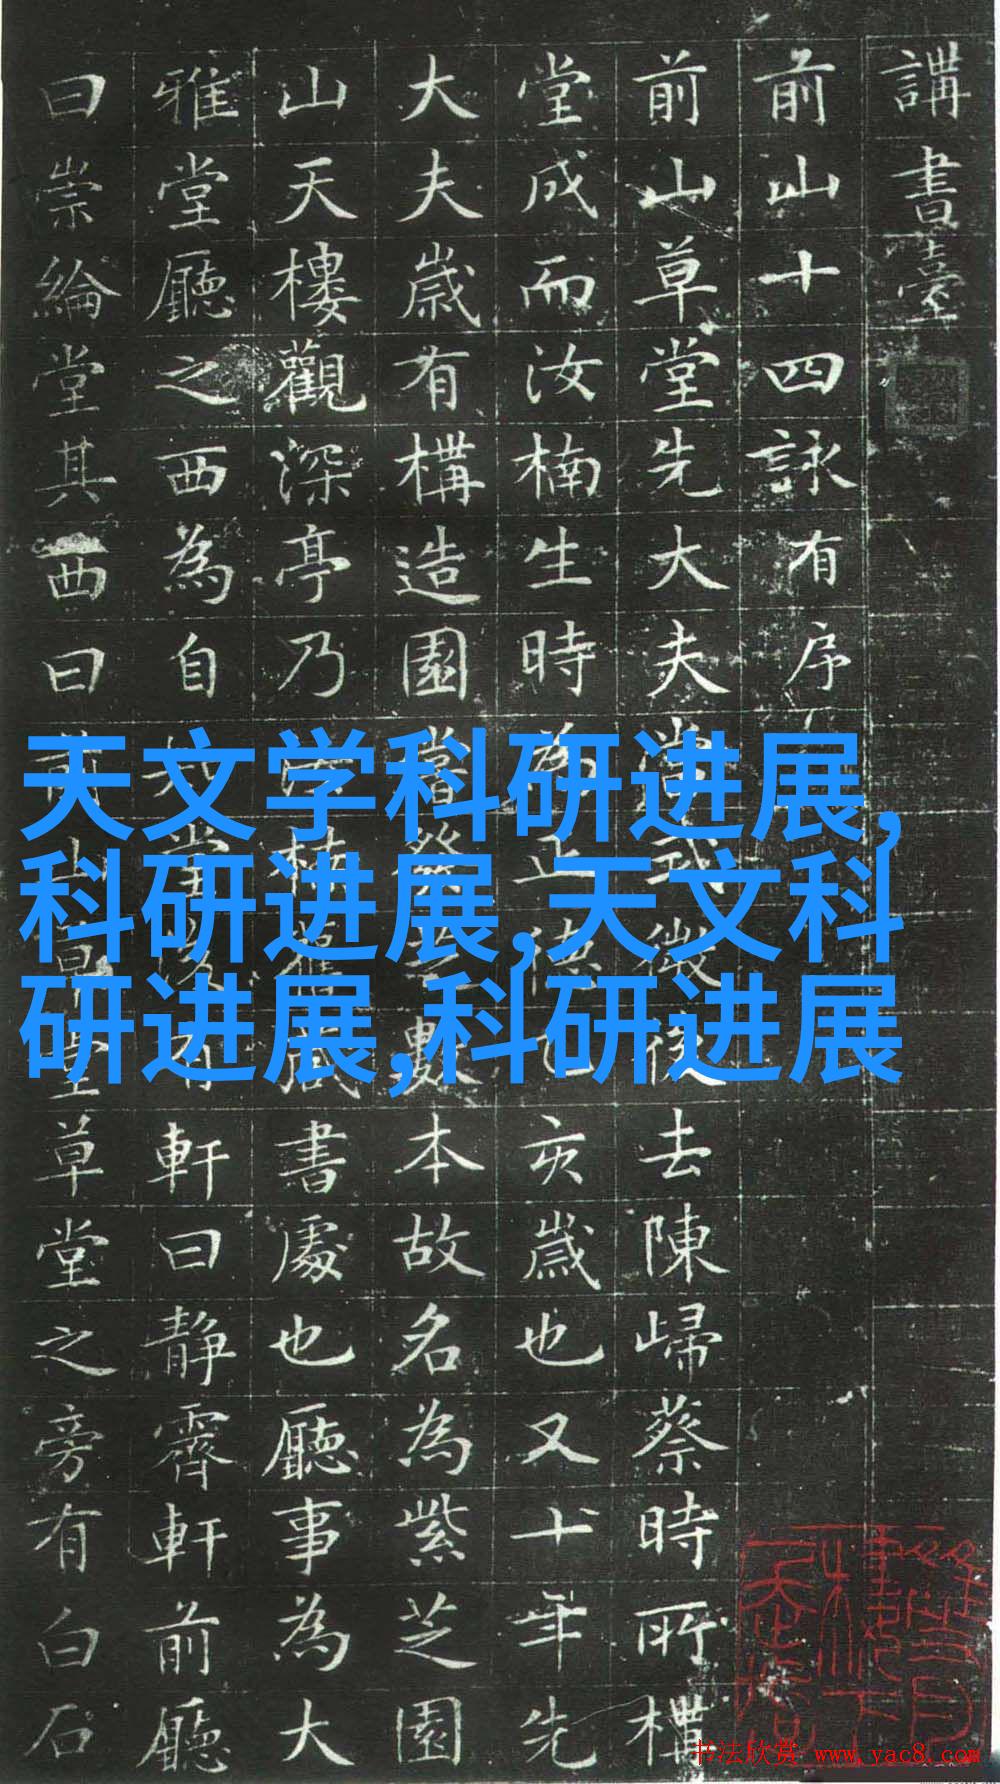 講書臺
前山十四詠有序
前山草堂先大夫式微後去陳歸蔡時所
堂成而汝楠生時為正德乙亥歲也又十年先
大夫歲有構造園芝數本故名為紫芝園
山天樓觀深亭乃楠舊藏書處也廳事為大
雅堂廳之西為自堂後有軒曰靜霽軒前廳
曰崇綸堂其西曰山草堂之旁有白石
天文学科研进展,
科研进展,天文科
研进展,科研进展
书法欣赏 www.yac8.com